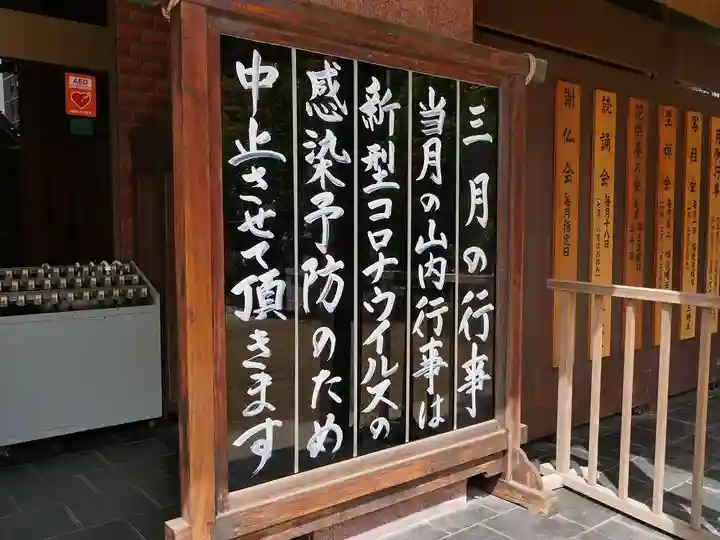 三月の行事
当月の山内行事は
新型コロナウイルスの
感染予防のため
中止させて頂きます
AED
謝仏会 毎月指定日
読誦会 毎月十八日
写経会